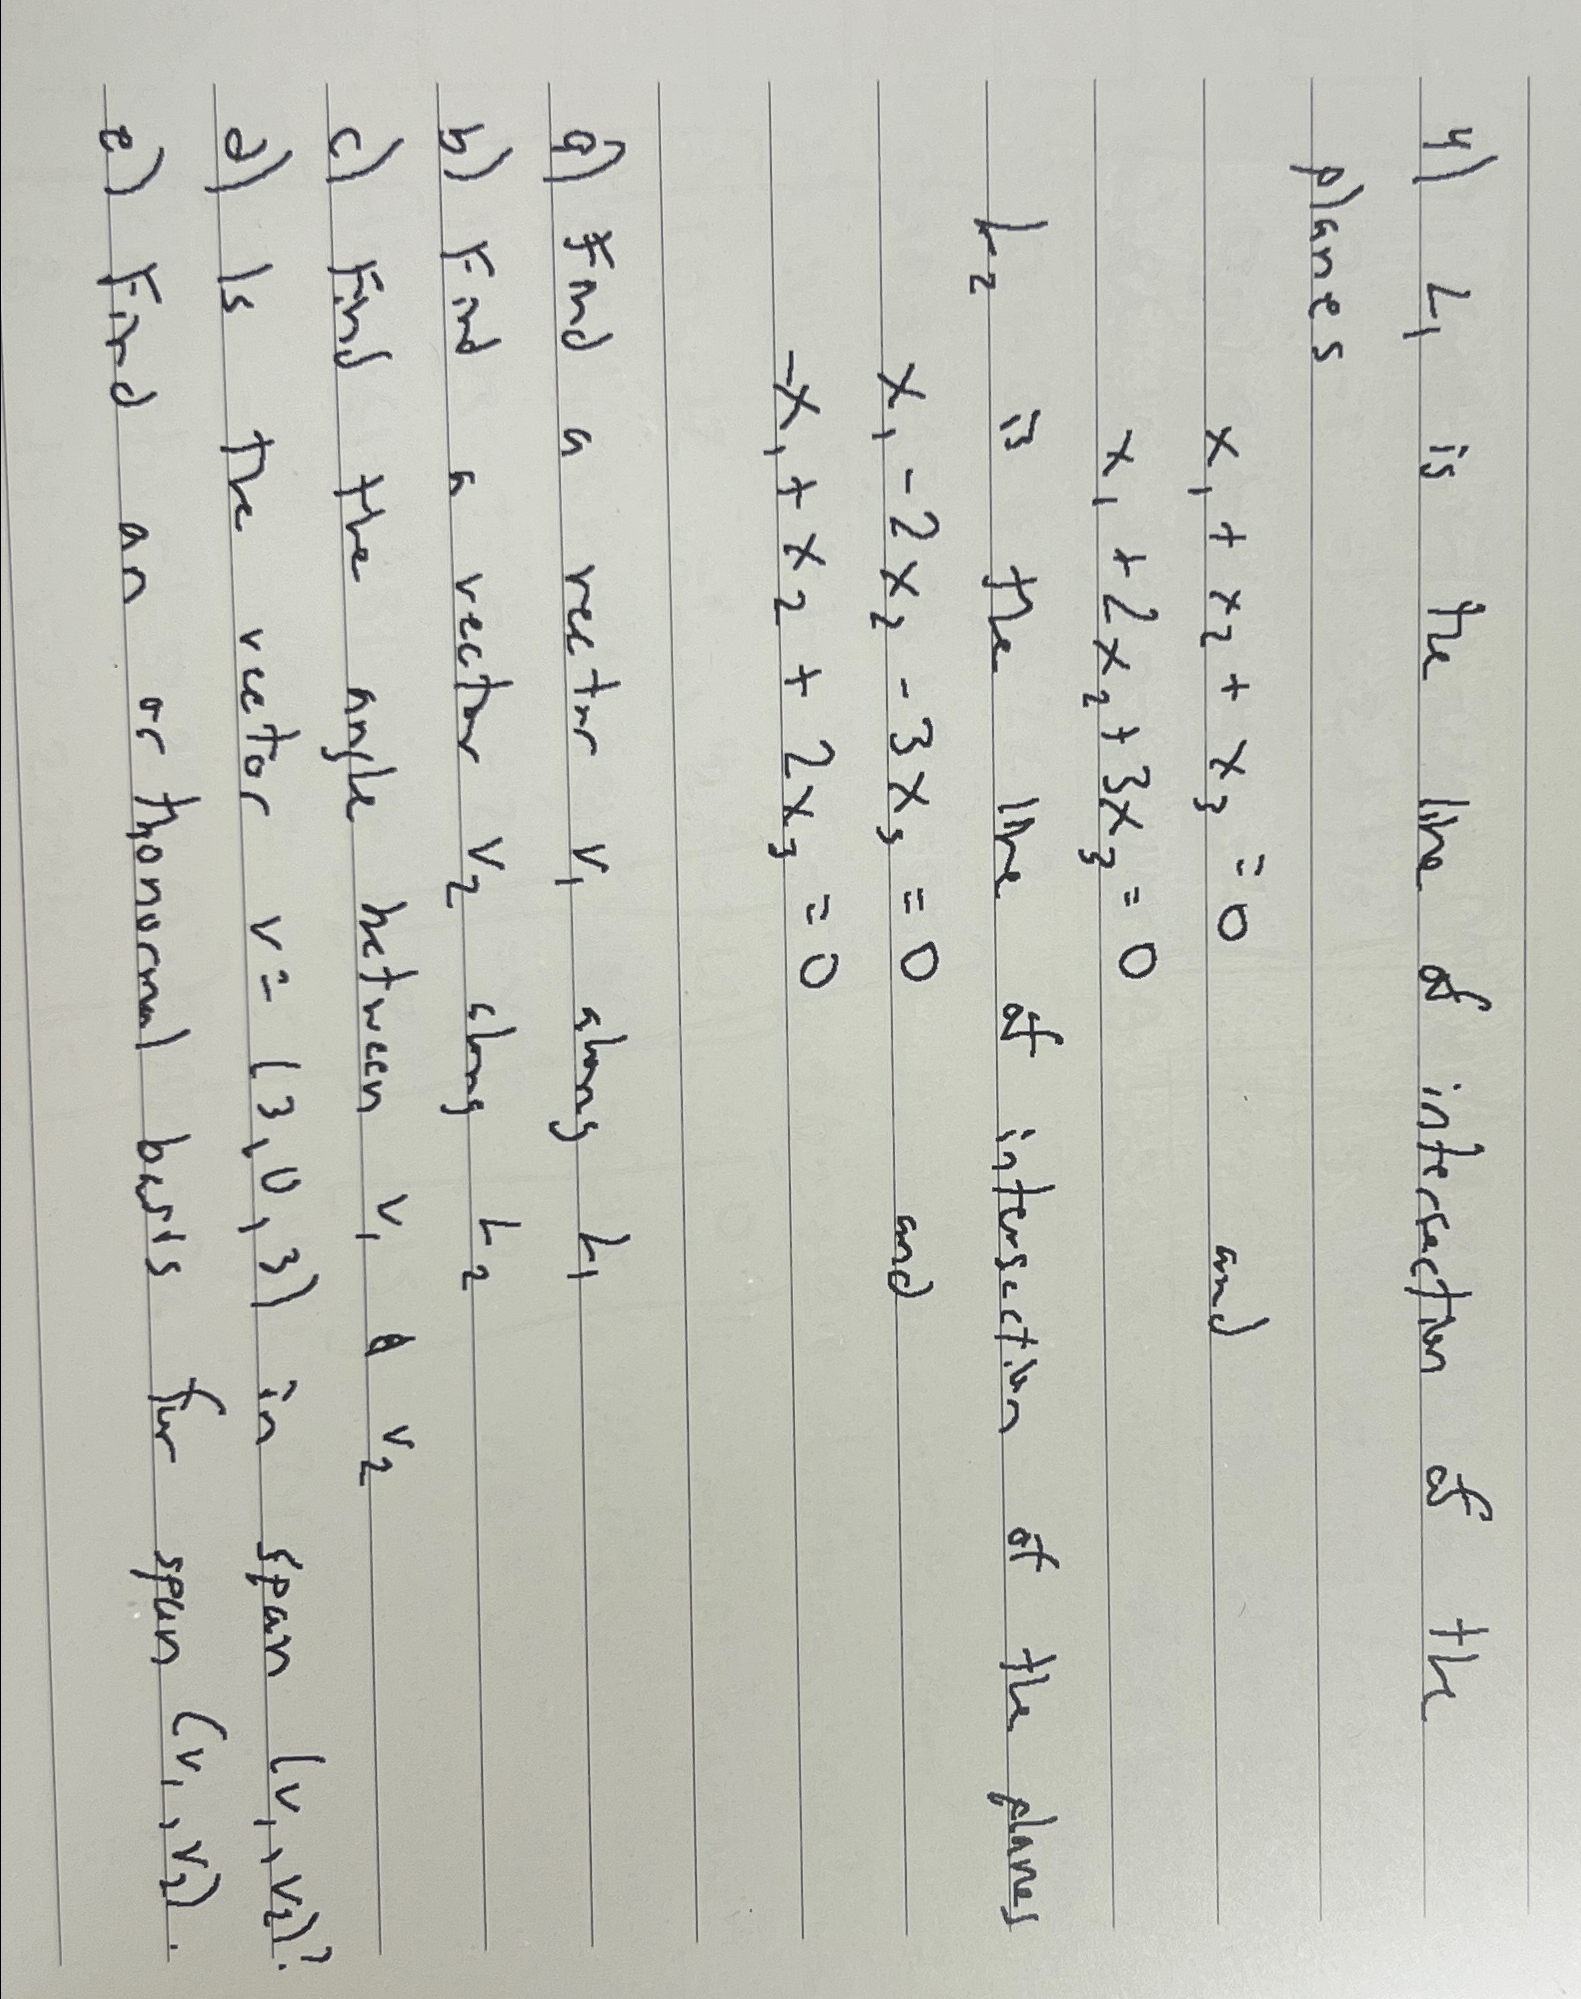 4) L₁ is the line of intersection of the
planes
x₁ + x₂ + x₃ = 0 and
x₁ + 2x₂ + 3x₃ = 0
L₂ is the line of intersection of the planes
x₁ - 2x₂ - 3x₃ = 0 and
-x₁ + x₂ + 2x₃ = 0
a) Find a vector v₁ along L₁
b) Find a vector v₂ along L₂
c) Find the angle between v₁ & v₂
d) Is the vector v = (3,0,3) in span (v₁, v₂)?
e) Find an orthonormal basis for span (v₁, v₂).